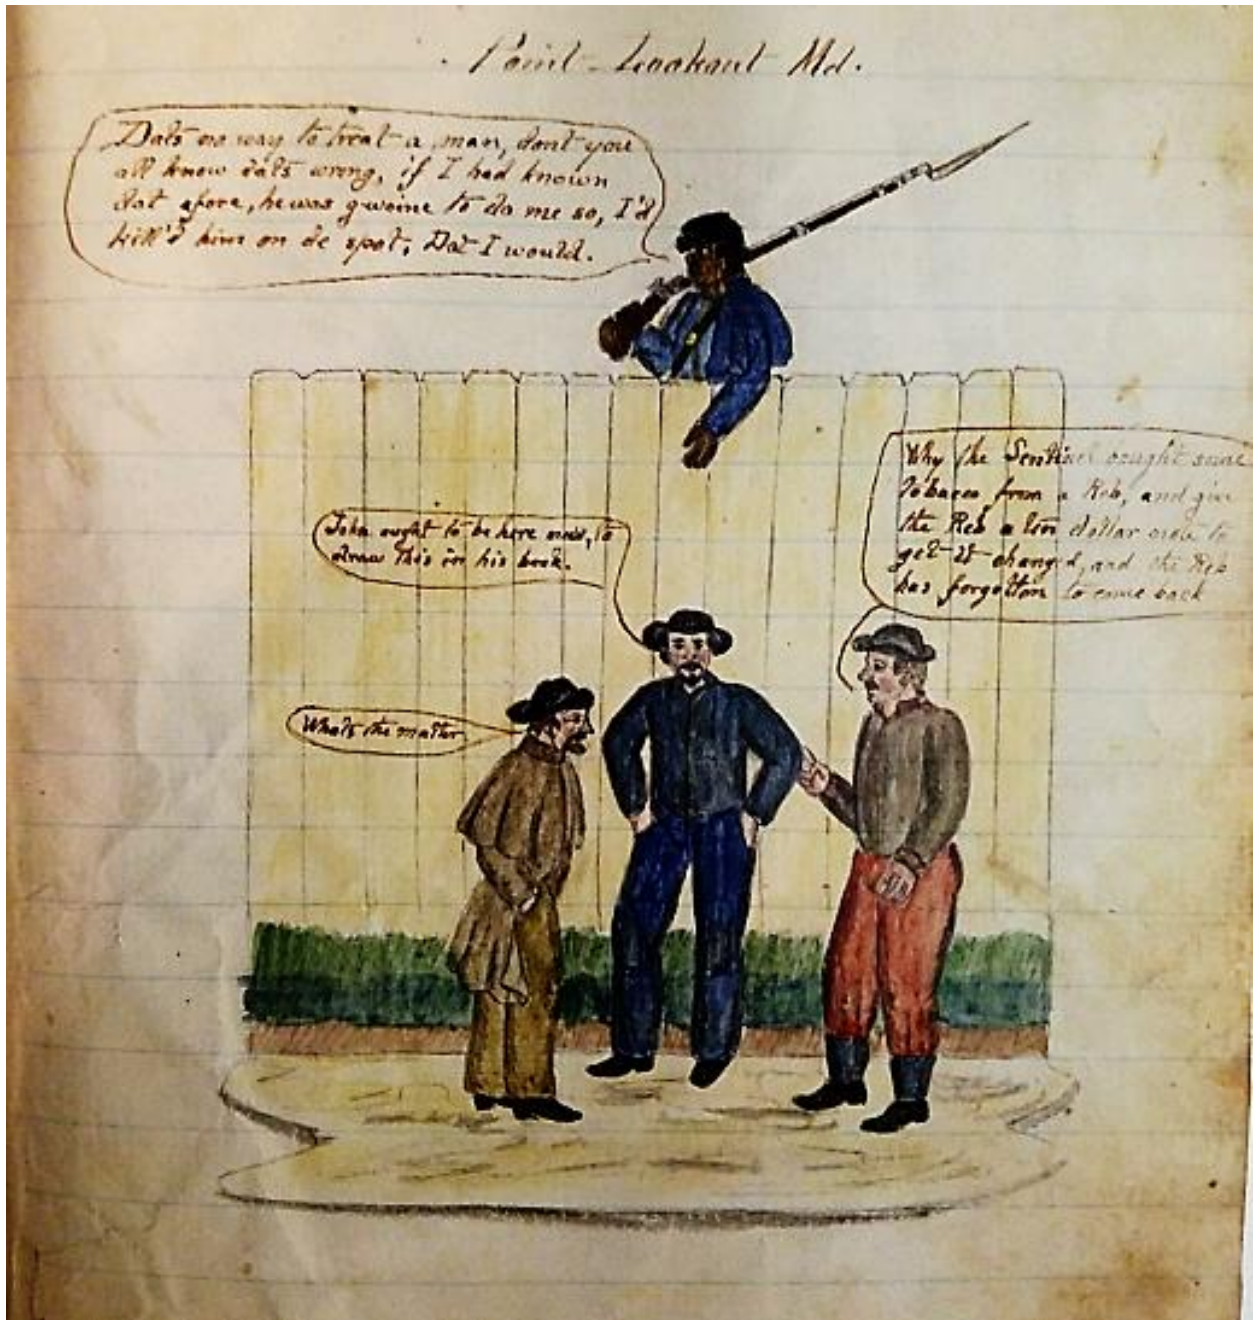 Point Lookout Md.
Dats no way to treat a man, dont you
all know dats wrong, if I had known
dat afore, he was gwoine to do me so, I'd
kill'd him on de spot, Dat I would.
Why the Sentinel bought some
Tobacco from a Reb, and give
the Reb a ten dollar note to
get it changed, and the Reb
has forgotton to come back
John ought to be here now, to
draw this in his book.
Whats the matter